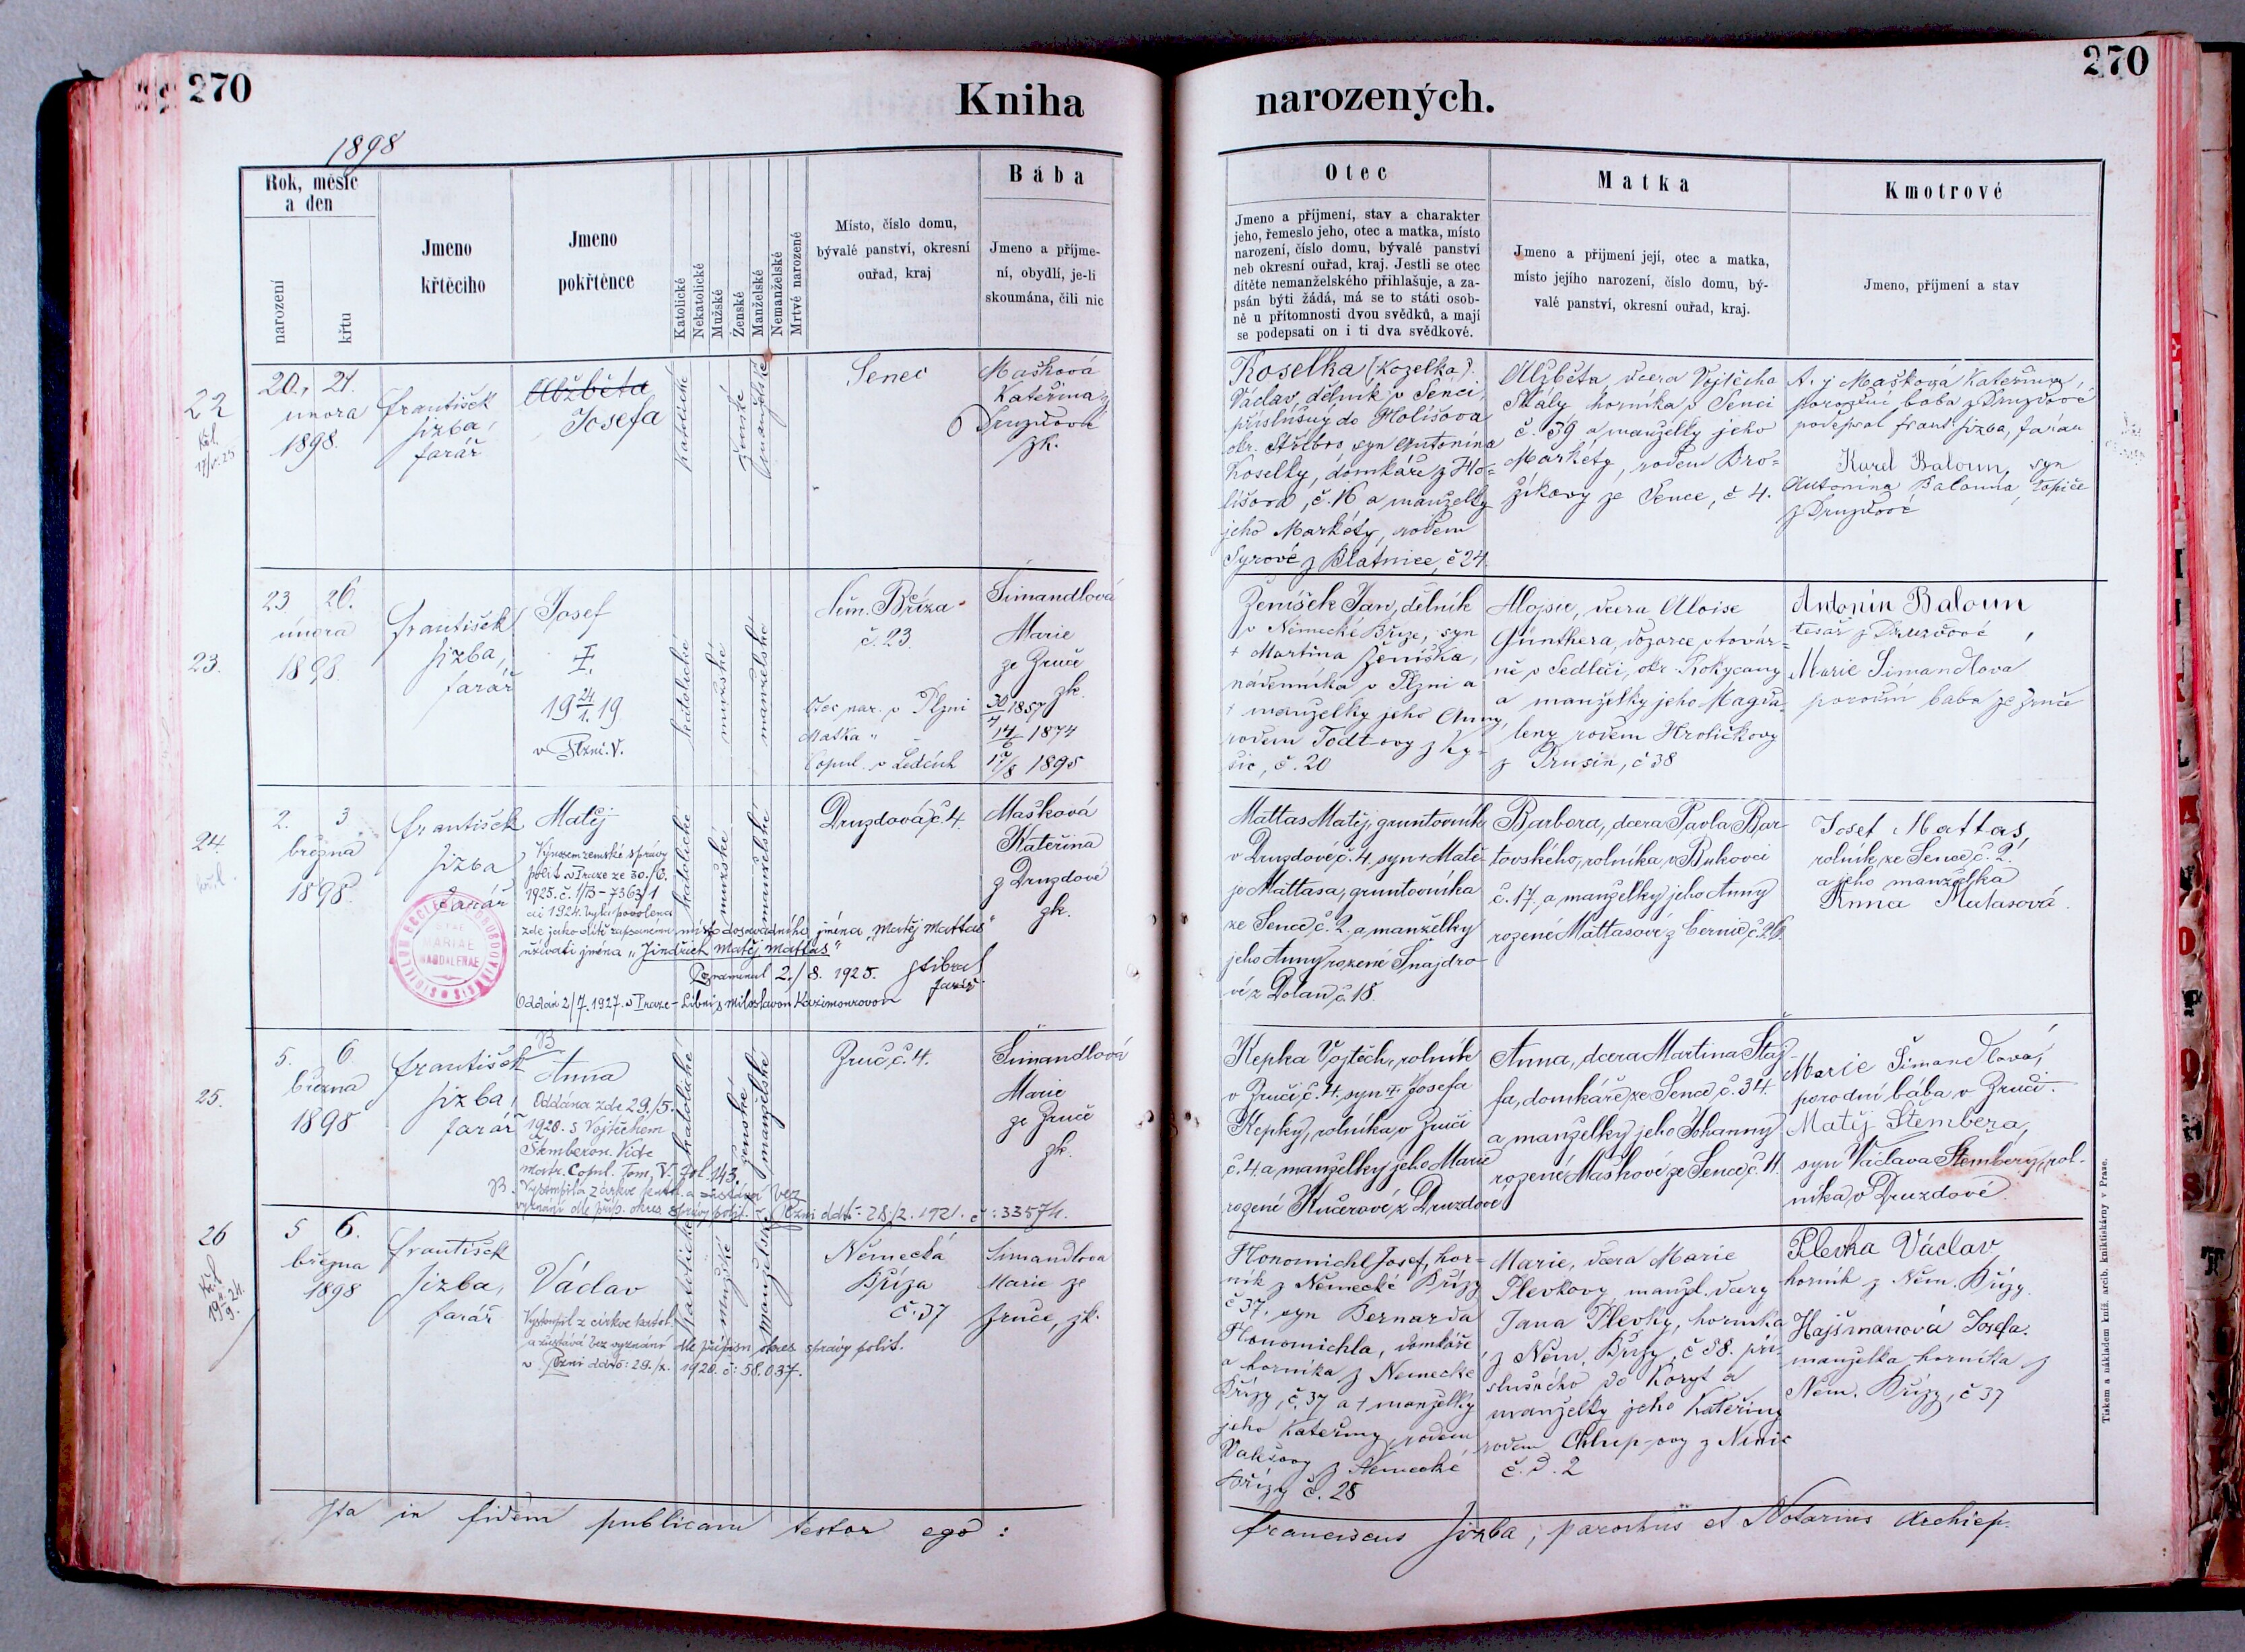 270
Kniha
narozených.
270
1898
Rok, měsíc
a den
narození
křtu
Jmeno
křtěcího
Jmeno
pokřtěnce
Katolické
Nekatolické
Mužské
Ženské
Manželské
Nemanželské
Mrtvě narozené
Místo, číslo domu,
bývalé panství, okresní
ouřad, kraj
Bába
Jmeno a příjme-
ní, obydlí, je-li
skoumána, čili nic
Otec
Jmeno a příjmení, stav a charakter
jeho, řemeslo jeho, otec a matka, místo
narození, číslo domu, bývalé panství
neb okresní ouřad, kraj. Jestli se otec
dítěte nemanželského přihlašuje, a za-
psán býti žádá, má se to státi osob-
ně u přítomnosti dvou svědků, a mají
se podepsati on i ti dva svědkové.
Matka
Jmeno a příjmení její, otec a matka,
místo jejího narození, číslo domu, bý-
valé panství, okresní ouřad, kraj.
Kmotrové
Jmeno, příjmení a stav
22
20. 21.
února
1898.
František
Jizba,
farář
Alžběta
Josefa
katolické
ženské
manželské
Senec
Mašková
Kateřina z
Druzdové
zk.
Koselka (Kozelka)
Václav, dělník v Senci,
příslušný do Holišova
okr. Stříbro, syn Antonína
Koselky, domkáře z Ho-
lišova, č. 16 a manželky
jeho Markéty, rodem
Syrové z Blatnice, č 24.
Alžběta, dcera Vojtěcha
Skály, horníka v Senci
č. 39 a manželky jeho
Markéty, rodem Bro-
žíkovy ze Sence, č 4.
Mašková Kateřina,
porodní baba z Druzdové
podepsal Frant. Jizba, farář
Karel Baloun, syn
Antonína Balouna,
z Druzdové
23.
23. 26.
února
1898.
František
Jizba,
farář
Josef
I.
19 24/1. 19
v Plzni. V.
katolické
mužské
manželské
Něm. Bříza
č. 23
Otec nar. v Plzni
Matka "
Copul. v Ledcích
Šimandlová
Marie
ze Zruče
zk.
30/4 1857
14/6 1874
17/8 1895
Ženíšek Jan, dělník
v Německé Bříze, syn
+ Martina Ženíška,
nádenníka v Plzni a
+ manželky jeho Anny,
rodem Todt-ovy z Ky-
šic, č. 20
Aloisie, dcera Aloise
Günthera, dozorce v továr-
ně v Sedlci, okr. Rokycany
a manželky jeho Magda-
leny rodem Hroličkovy
z Drusin, č 38
Antonín Baloun
tesař z Druzdové,
Marie Šimandlová
porodní baba ze Zruče
24.
2. 3
března
1898.
František
Jizba
farář
Matěj
Výnosem zemské správy
polit. v Praze ze 30./6.
1925. č. 1/B-7363/1
ai 1924. byla povolena
zde jako dítě zapsanému místo dosavadního jména „Matěj Mattas"
užívati jména „Jindřich Matěj Mattas"
Poznamenal 2./8. 1925. Stibral
farář
Oddán 2/7. 1927. v Praze-Libni s Miloslavou Kazimourovou
MARIAE
MAGDALENAE
katolické
mužské
manželské
Druzdová, č. 4.
Mašková
Kateřina
z Druzdové
zk.
Mattas Matěj, gruntovník
v Druzdové, č. 4. syn + Matě-
je Mattasa, gruntovníka
ze Sence, č. 2. a manželky
jeho Anny rozené Šnajdro-
vé z Dolan, č. 18.
Barbora, dcera Pavla Bar-
tovského, rolníka v Bukovci
č. 17, a manželky jeho Anny
rozené Mattasové z Černic, č. 26.
Josef Mattas,
rolník ze Sence, č. 2.
a jeho manželka
Anna Matasová.
25.
5. 6.
března
1898
František
Jizba,
farář
B
Anna
Oddána zde 29./5.
1920. s Vojtěchem
Štemberou. Vide
matr. Copul. Tom. V. fol. 143.
B. Vystoupila z církve katol. a zůstává bez
vyznání dle příp. okres. správy polit. v Plzni ddto: 28/2. 1921. č: 33574.
katolické
ženské
manželské
Zruč, č. 4.
Šimandlová
Marie
ze Zruče
zk.
Kepka Vojtěch, rolník
v Zruči, č. 4. syn + Josefa
Kepky, rolníka v Zruči
č. 4. a manželky jeho Marie
rozené Kučerové z Druzdové
Anna, dcera Martina Štaj-
fa, domkáře ze Sence, č. 34.
a manželky jeho Johanny
rozené Maškové ze Sence, č. 11.
Marie Šimandlová,
porodní bába v Zruči.
Matěj Štembera,
syn Václava Štembery, rol-
níka v Druzdové.
26
5 6.
března
1898
František
Jizba,
farář
Václav
Vystoupil z církve katol.
a zůstává bez vyznání dle přípisu okres. správy polit.
v Plzni ddto: 29./x. 1920. č: 58.037.
katolické
mužské
manželské
Německá
Bříza
č. 37
Šimandlová
Marie ze
Zruče, zk.
Plonomichl Josef, hor-
ník z Německé Břízy
č 37. syn Bernarda
Plonomichla, domkáře
a horníka z Německé
Břízy, č. 37 a + manželky
jeho Kateřiny, rodem
z Německé
Břízy č. 28
Marie, dcera Marie
Plevkovy, manžel. dcery
Jana Plevky, horníka
z Něm. Břízy, č 38. pří-
slušného do Koryt a
manželky jeho Kateřiny
rodem Chlup-ovy z
č. d. 2
Plevka Václav,
horník z Něm. Břízy.
Hajšmanová Josefa.
manželka horníka z
Něm. Břízy, č 37
Ita in fidem publicam testor ego:
Franciscus Jizba, parochus et Notarius Archiep.
Tiskem a nákladem kníž. arcib. knihtiskárny v Praze.